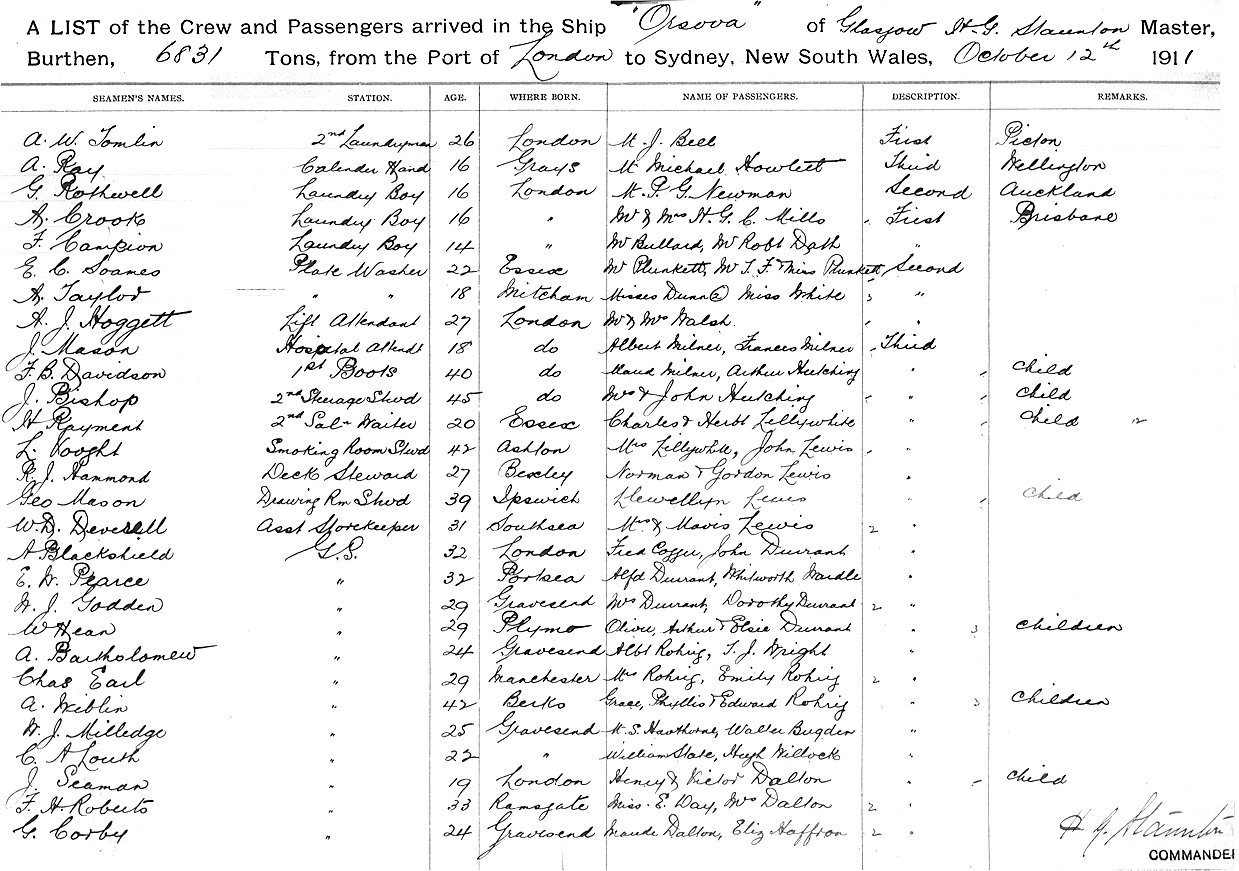 A LIST of the Crew and Passengers arrived in the Ship "Orsova" of Glasgow H. G. Staunton Master,
Burthen, 6831 Tons, from the Port of London to Sydney, New South Wales, October 12th 1911
SEAMEN'S NAMES. STATION. AGE. WHERE BORN. NAME OF PASSENGERS. DESCRIPTION. REMARKS.
A. W. Tomlin 2nd Laundryman 26 London M. J. Bell First Picton
A. Ray Calender Hand 16 Grays Mr Michael Howlett Third Wellington
G. Rothwell Laundry Boy 16 London P. G. Newman Second Auckland
A. Crook Laundry Boy 16 " Mr & Mrs H. G. C. Mills " First Brisbane
F. Campion Laundry Boy 14 " Mr Bullard, Mr Robt Dath "
E. C. Soames Plate Washer 22 Essex Mr Plunkett, Mr T. F. & Miss Plunkett, Second
A. Taylor " " 18 Mitcham Misses Dunn Miss White 3 "
A. J. Hoggett Lift Attendant 27 London Mr & Mrs Walsh. " "
J. Mason Hospital Attendt 18 do Albert Milner, Frances Milner " Third
F. B. Davidson 1st Boots 40 do Maud Milner, Arthur Hutching " child
J. Bishop 2nd Steerage Stwd 45 do Mrs & John Hutching " " child
H Rayment 2nd Saln Waiter 20 Essex Charles & Herbt Lillywhite " child
L. Vooght Smoking Room Stwd 42 Ashton Mrs Lillywhite, John Lewis "
R. J. Hammond Deck Steward 27 Bexley Norman & Gordon Lewis "
Geo Mason Drawing Rm Stwd 39 Ipswich Llewellyn Lewis " child
W. D. Deverell Asst Storekeeper 31 Southsea Mrs & Mavis Lewis 2 "
A Blackshield G.S. 32 London Fred Cogger, John Durrant "
E. W. Pearce " 32 Portsea Alfd Durrant, Whitworth Wardle "
W. J. Godden " 29 Gravesend Mrs Durrant, Dorothy Durrant 2 "
W Hean " 29 Plymo Oliver, Arthur & Elsie Durrant " 3 children
A. Bartholomew " 24 Gravesend Albt Rohrig, T. J. Wright "
Chas Earl " 29 Manchester Mrs Rohrig, Emily Rohrig 2 "
A. Wiblin " 42 Berks Grace, Phyllis & Edward Rohrig " 3 children
W. J. Milledge " 25 Gravesend S. Hawthorne, Walter Bugden "
C. A Louth " 22 " William Slate, Hugh Willock "
J. Seaman " 19 London Henry & Victor Dalton " child
F. H. Roberts " 33 Ramsgate Miss E. Day, Mrs Dalton 2 "
G. Corby " 24 Gravesend Maude Dalton, Eliz Haffron 2 "
H G. Staunton
COMMANDER